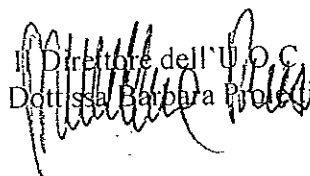 Il Direttore dell'U.O.C.
Dott.ssa Barbara